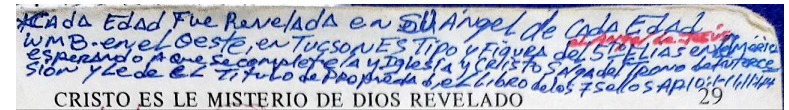 *CADA EDAD FUE REVELADA en SU ÁNGEL de CADA EDAD
WMB. en el Oeste, en TUCSON ES TIPO y FIGURA del 5TO ELIAS en AMÉRICA
esperando A que se complete la Iglesia y CRISTO SALGA del TRONO de INTERCE
SION y Lede el TITULO de PROPIEDAD, el LIBRO de los 7 Sellos APO 10:1-11
CRISTO ES LE MISTERIO DE DIOS REVELADO 29